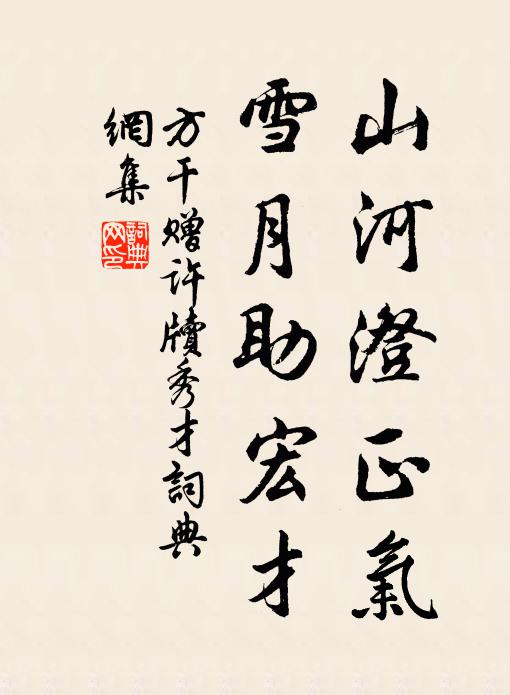 山河澄正氣
雪月助宏才
方干贈許牘秀才詞典
網集
詞典
网印